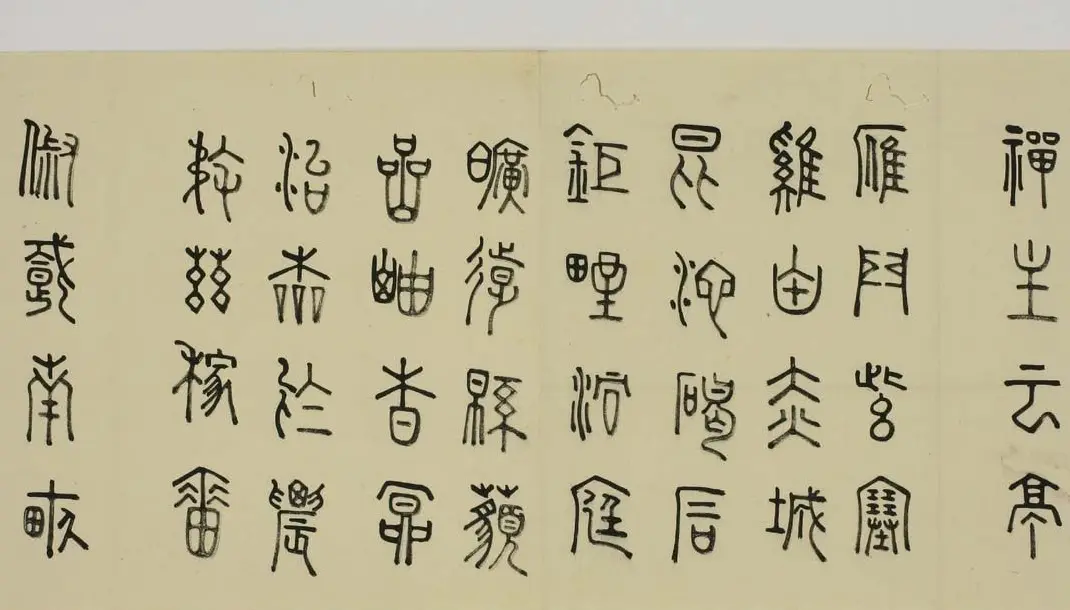 禪主云亭
雁門紫塞
雞田赤城
昆池碣石
鉅野洞庭
曠遠緜邈
嵒岫杳冥
治本於農
務茲稼嗇
俶載南畝